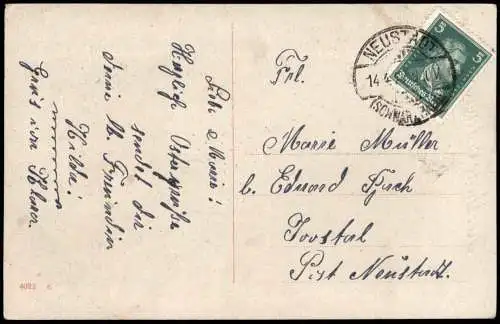 Liebe Marie!
Herzlich Ostergrüße
sendet dir
deine lb. Freundin
Hilde!
Gruß von
4022
Frl.
Marie Müller
b. Eduard
Post Neustadt.
NEUSTADT
14.4
(SCHWARZW
5 5
Deutsches Reich